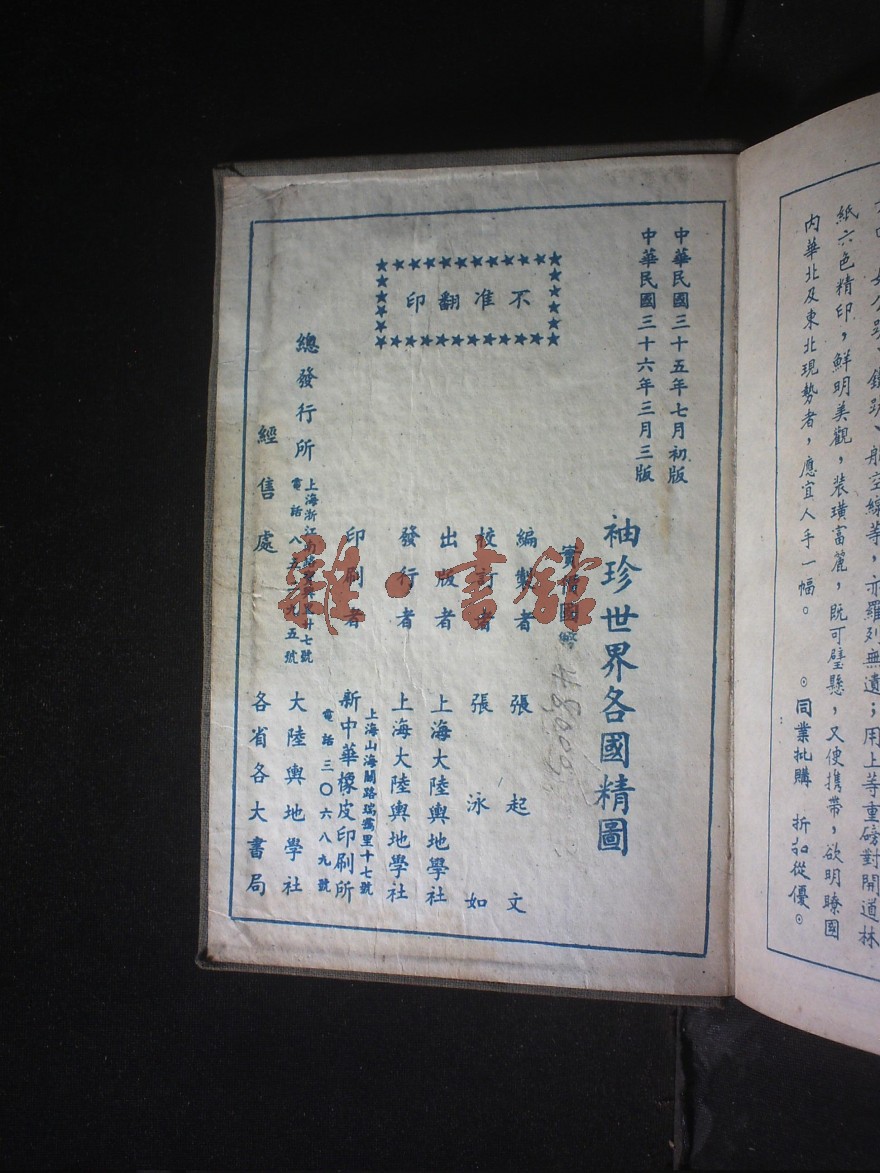 紙六色精印，鮮明美觀，装璜富麗，既可壁懸，又便携帶，欲明瞭國
内華北及東北現勢者，應宜人手一幅。 ⊙同業批購 折扣從優⊙
中華民國三十五年七月初版
中華民國三十六年三月三版
袖珍世界各國精圖
實價國幣
編製者 張起文
校訂者 張泳如
出版者 上海大陸輿地學社
發行者 上海大陸輿地學社
印刷者 新中華橡皮印刷所
上海山海關路瑞靄里十七號
電話三〇六八九號
不准翻印
總發行所 大陸輿地學社
上海浙江
電話八五 九五號
經售處 各省各大書局
雜·書館